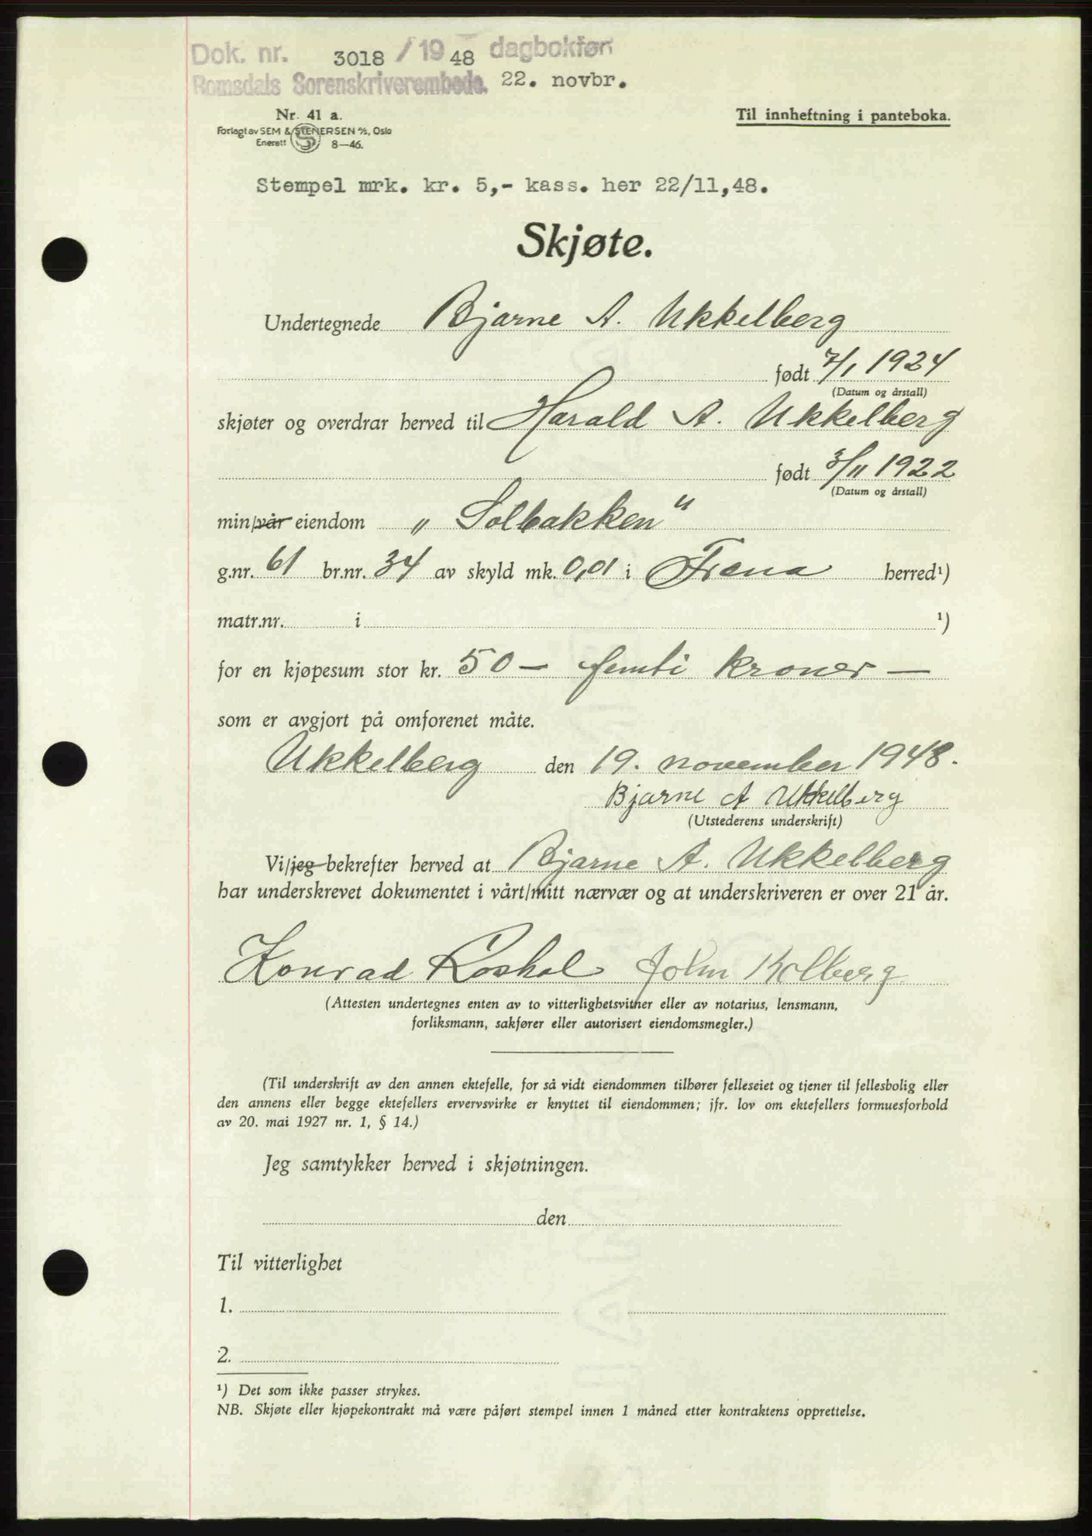 Dok. nr. 3018 / 1948 dagbokført
Romsdals Sorenskriverembede. 22. novbr.
Nr. 41 a.
Til innheftning i panteboka.
Forlagt av SEM & STENERSEN A/S, Oslo
Enerett S 8—46.
Stempel mrk. kr. 5,- kass. her 22/11,48.
Skjøte.
Undertegnede Bjarne A. Ukkelberg
født 7/1 1924
(Datum og årstall)
skjøter og overdrar herved til Harald A. Ukkelberg
født 3/11 1922
(Datum og årstall)
min/vår eiendom „Solbakken"
g.nr. 61 br.nr. 34 av skyld mk. 0,01 i Fræna herred¹)
matr.nr. i ¹)
for en kjøpesum stor kr. 50 — femti kroner —
som er avgjort på omforenet måte.
Ukkelberg den 19. november 1948.
Bjarne A Ukkelberg
(Utstederens underskrift)
Vi/jeg bekrefter herved at Bjarne A. Ukkelberg
har underskrevet dokumentet i vårt/mitt nærvær og at underskriveren er over 21 år.
Konrad Roshol John Kolberg
(Attesten undertegnes enten av to vitterlighetsvitner eller av notarius, lensmann,
forliksmann, sakfører eller autorisert eiendomsmegler.)
(Til underskrift av den annen ektefelle, for så vidt eiendommen tilhører felleseiet og tjener til fellesbolig eller
den annens eller begge ektefellers ervervsvirke er knyttet til eiendommen; jfr. lov om ektefellers formuesforhold
av 20. mai 1927 nr. 1, § 14.)
Jeg samtykker herved i skjøtningen.
den
Til vitterlighet
1.
2.
¹) Det som ikke passer strykes.
NB. Skjøte eller kjøpekontrakt må være påført stempel innen 1 måned etter kontraktens opprettelse.